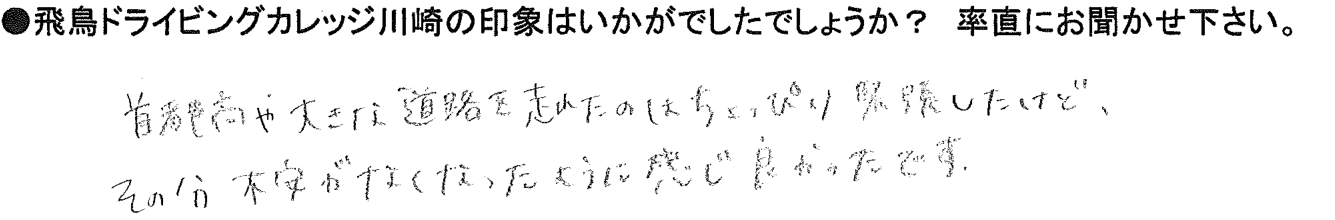 ●飛鳥ドライビングカレッジ川崎の印象はいかがでしたでしょうか？　率直にお聞かせ下さい。
首都高や大きな道路を走れたのはちょっぴり緊張したけど、
その分不安がなくなったように感じ良かったです。